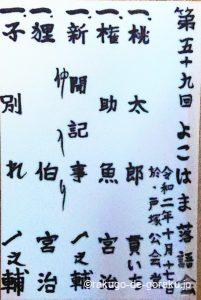 第五十九回 よこはま落語会
令和二年十月十七
於・戸塚公会堂
一、桃太郎 貫いち
一、権助魚 宮治
一、新聞記事 一之輔
仲入り
一、狸 伯 宮治
一、子別れ 一之輔
©rakugo-de-goraku.jp